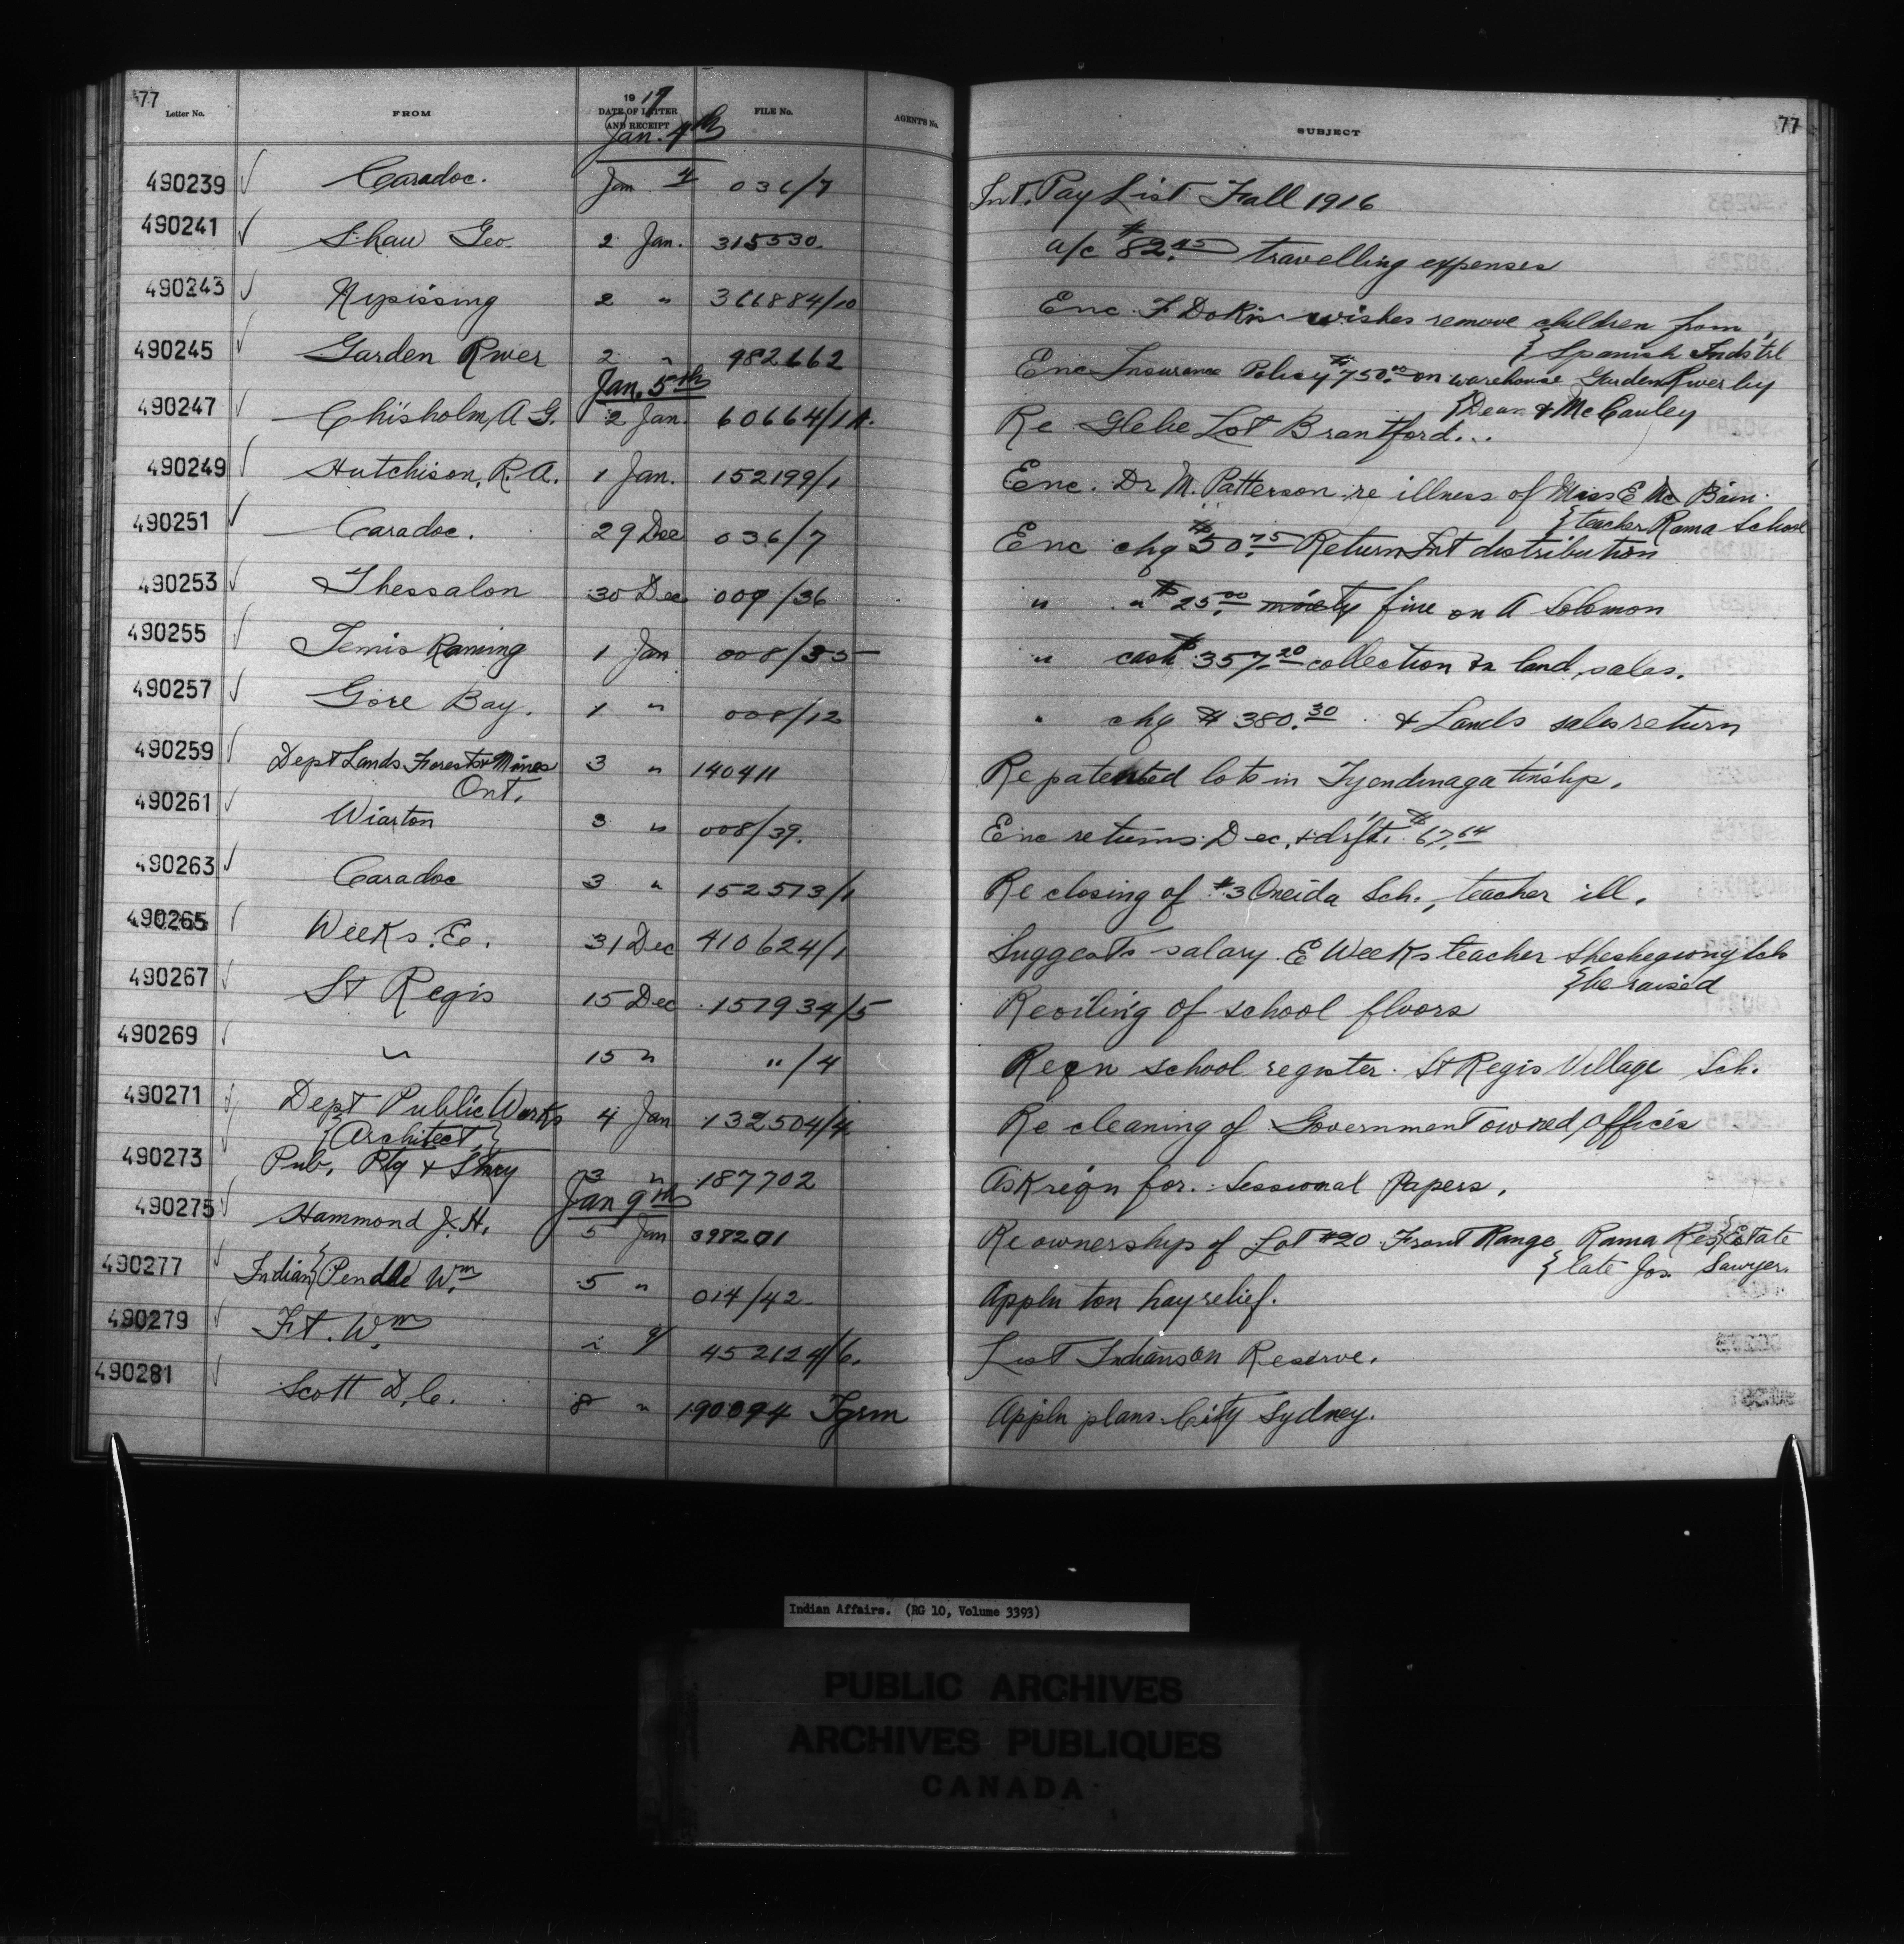 77
Letter No. FROM 1917 DATE OF LETTER AND RECEIPT FILE No. AGENTS No. SUBJECT 77
Jan. 4th
490239 ✓ Caradoc. Jan 4 036/7 Int. Pay List Fall 1916
490241 ✓ Shaw Geo. 2 Jan. 315330 a/c $82.45 travelling expenses
490243 ✓ Nipissing 2 " 366884/10 Enc. F Dokis wishes remove children from
{Spanish Indstrl
490245 ✓ Garden River 2 " 982662 Enc Insurance Policy $750.00 on warehouse Garden River by
{Dean & McCauley
Jan. 5th
490247 ✓ Chisholm, A G. 2 Jan. 60664/1A. Re Glebe Lot Brantford...
490249 ✓ Hutchison, R. A. 1 Jan. 152199/1 Enc. Dr M. Patterson re illness of Miss E Mc Bain
{teacher Rama School
490251 ✓ Caradoc. 29 Dec 036/7 Enc chq $50.75 Return Int distribution
490253 ✓ Thessalon 30 Dec 009/36 " " $25.00 moiety fine on A Solomon
490255 ✓ Temiskaming 1 Jan 008/35 " cash $357.20 collection in land sales.
490257 ✓ Gore Bay. 1 " 008/12 " chq $380.30 & Lands sales return
490259 ✓ Dept Lands Forests & Mines 3 " 140411 Re patented lots in Tyendinaga tnship.
Ont.
490261 ✓ Wiarton 3 " 008/39. Enc returns Dec. & drft. $67.64
490263 ✓ Caradoc 3 " 152573/1 Re closing of #3 Oneida Sch., teacher ill.
490265 ✓ Weeks. E. 31 Dec 410624/1 Suggests salary E Weeks teacher Sheshegwong Sch
{be raised
490267 ✓ St Regis 15 Dec 157934/5 Re oiling of school floors
490269 ✓ " 15 " "/4 Reqn school register. St Regis Village Sch.
490271 ✓ Dept Public Works 4 Jan 132504/4 Re cleaning of Government owned offices
{Architect}
490273 ✓ Pub. Ptg & Stnry 3 " 187702 Ask reqn for Sessional Papers.
Jan 9th
490275 ✓ Hammond J. H. 5 Jan 398201 Re ownership of Lot #20 Front Range Rama Res {Estate
{late Jos. Sawyer.
490277 ✓ Indian {Pendle Wm. 5 " 014/42 Appln ton hay relief.
490279 ✓ Ft. Wm. 452124/6. List Indians on Reserve.
490281 ✓ Scott D. C. 8 " 190094 Appln plans City Sydney.
Indian Affairs. (RG 10, Volume 3393)
PUBLIC ARCHIVES
ARCHIVES PUBLIQUES
CANADA